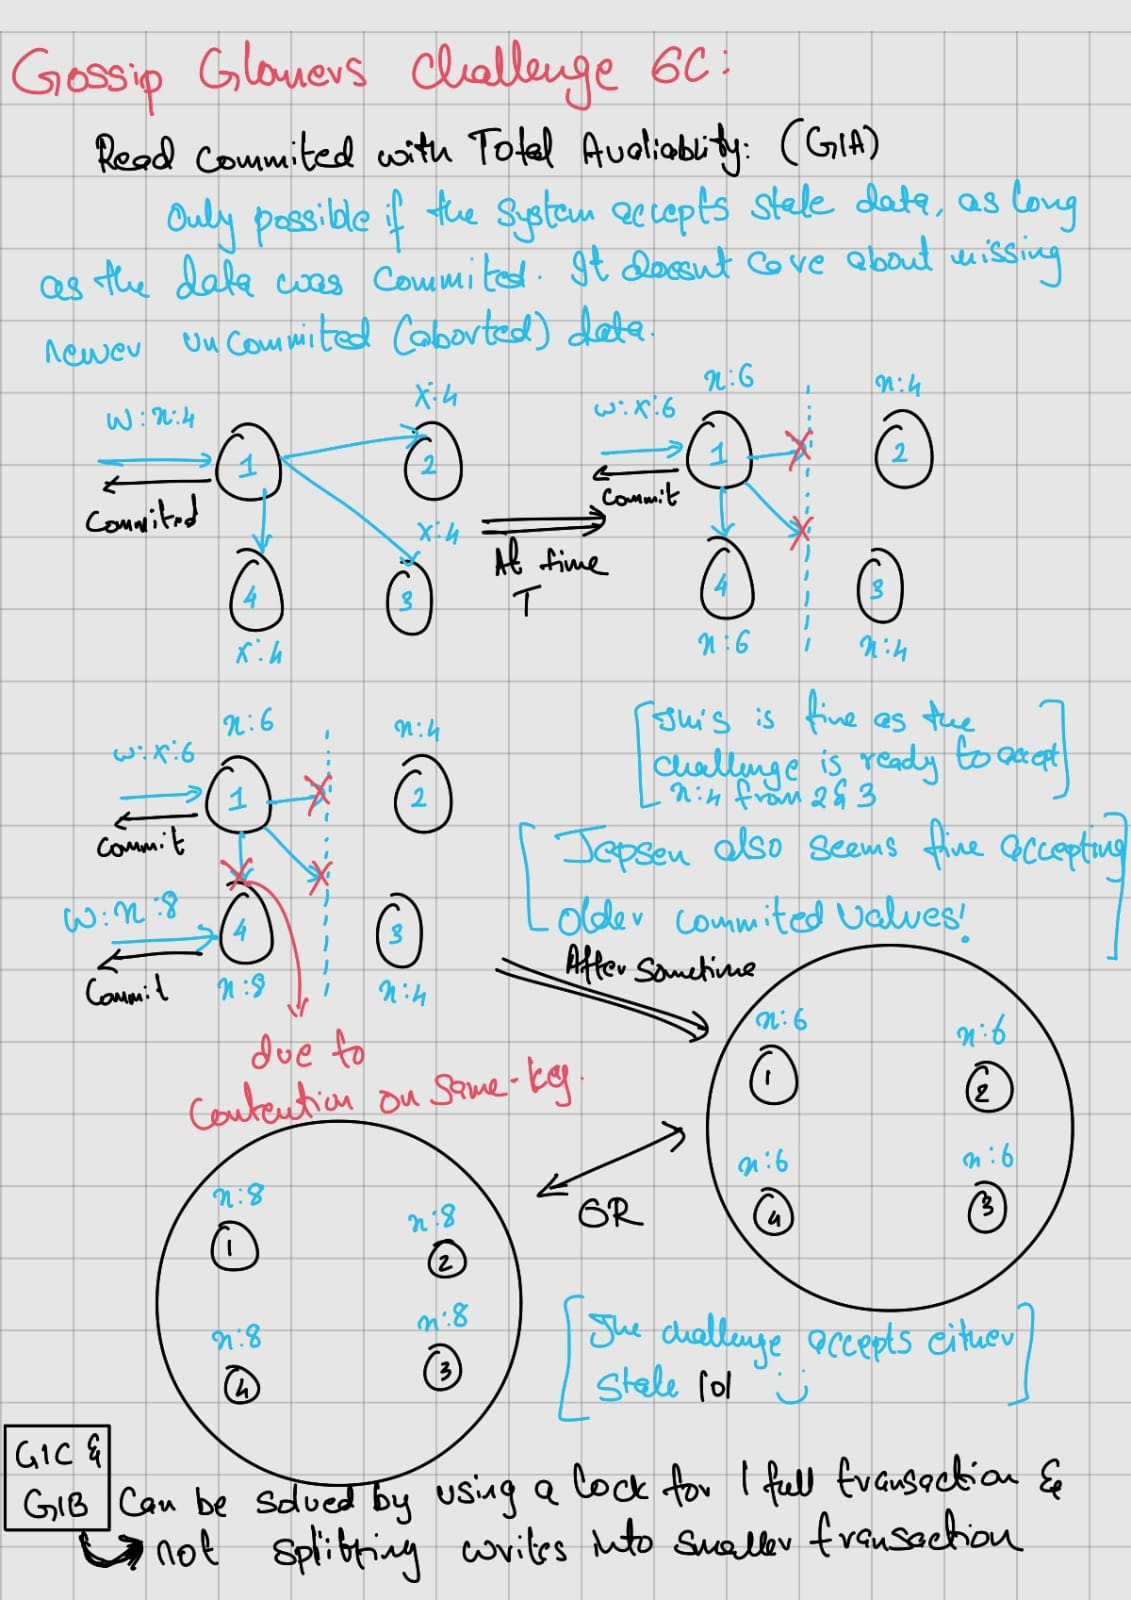 Gossip Glomers Challenge 6C:
Read Commited with Total Avaliablity: (G1A)
Only possible if the system accepts stale data, as long
as the data was Commited. It doesnt care about missing
newer uncommited (aborted) data.
w: x:4
1
Commited
x:4
2
x:4
3
4
x:4
At time
T
w: x:6
x:6
1
Commit
x:4
2
4
x:6
3
x:4
w: x:6
x:6
1
Commit
x:4
2
w: x:8
4
Commit
x:8
3
x:4
due to
Contention on Same-key.
[This is fine as the
challenge is ready to accept
x:4 from 2 & 3]
[Jepsen also seems fine accepting
older commited values!]
After Sometime
x:6
1
x:6
2
x:6
4
x:6
3
OR
x:8
1
x:8
2
x:8
4
x:8
3
[The challenge accepts either
stale lol :)]
G1C &
G1B
Can be solved by using a lock for 1 full transaction &
not splitting writes into smaller transaction